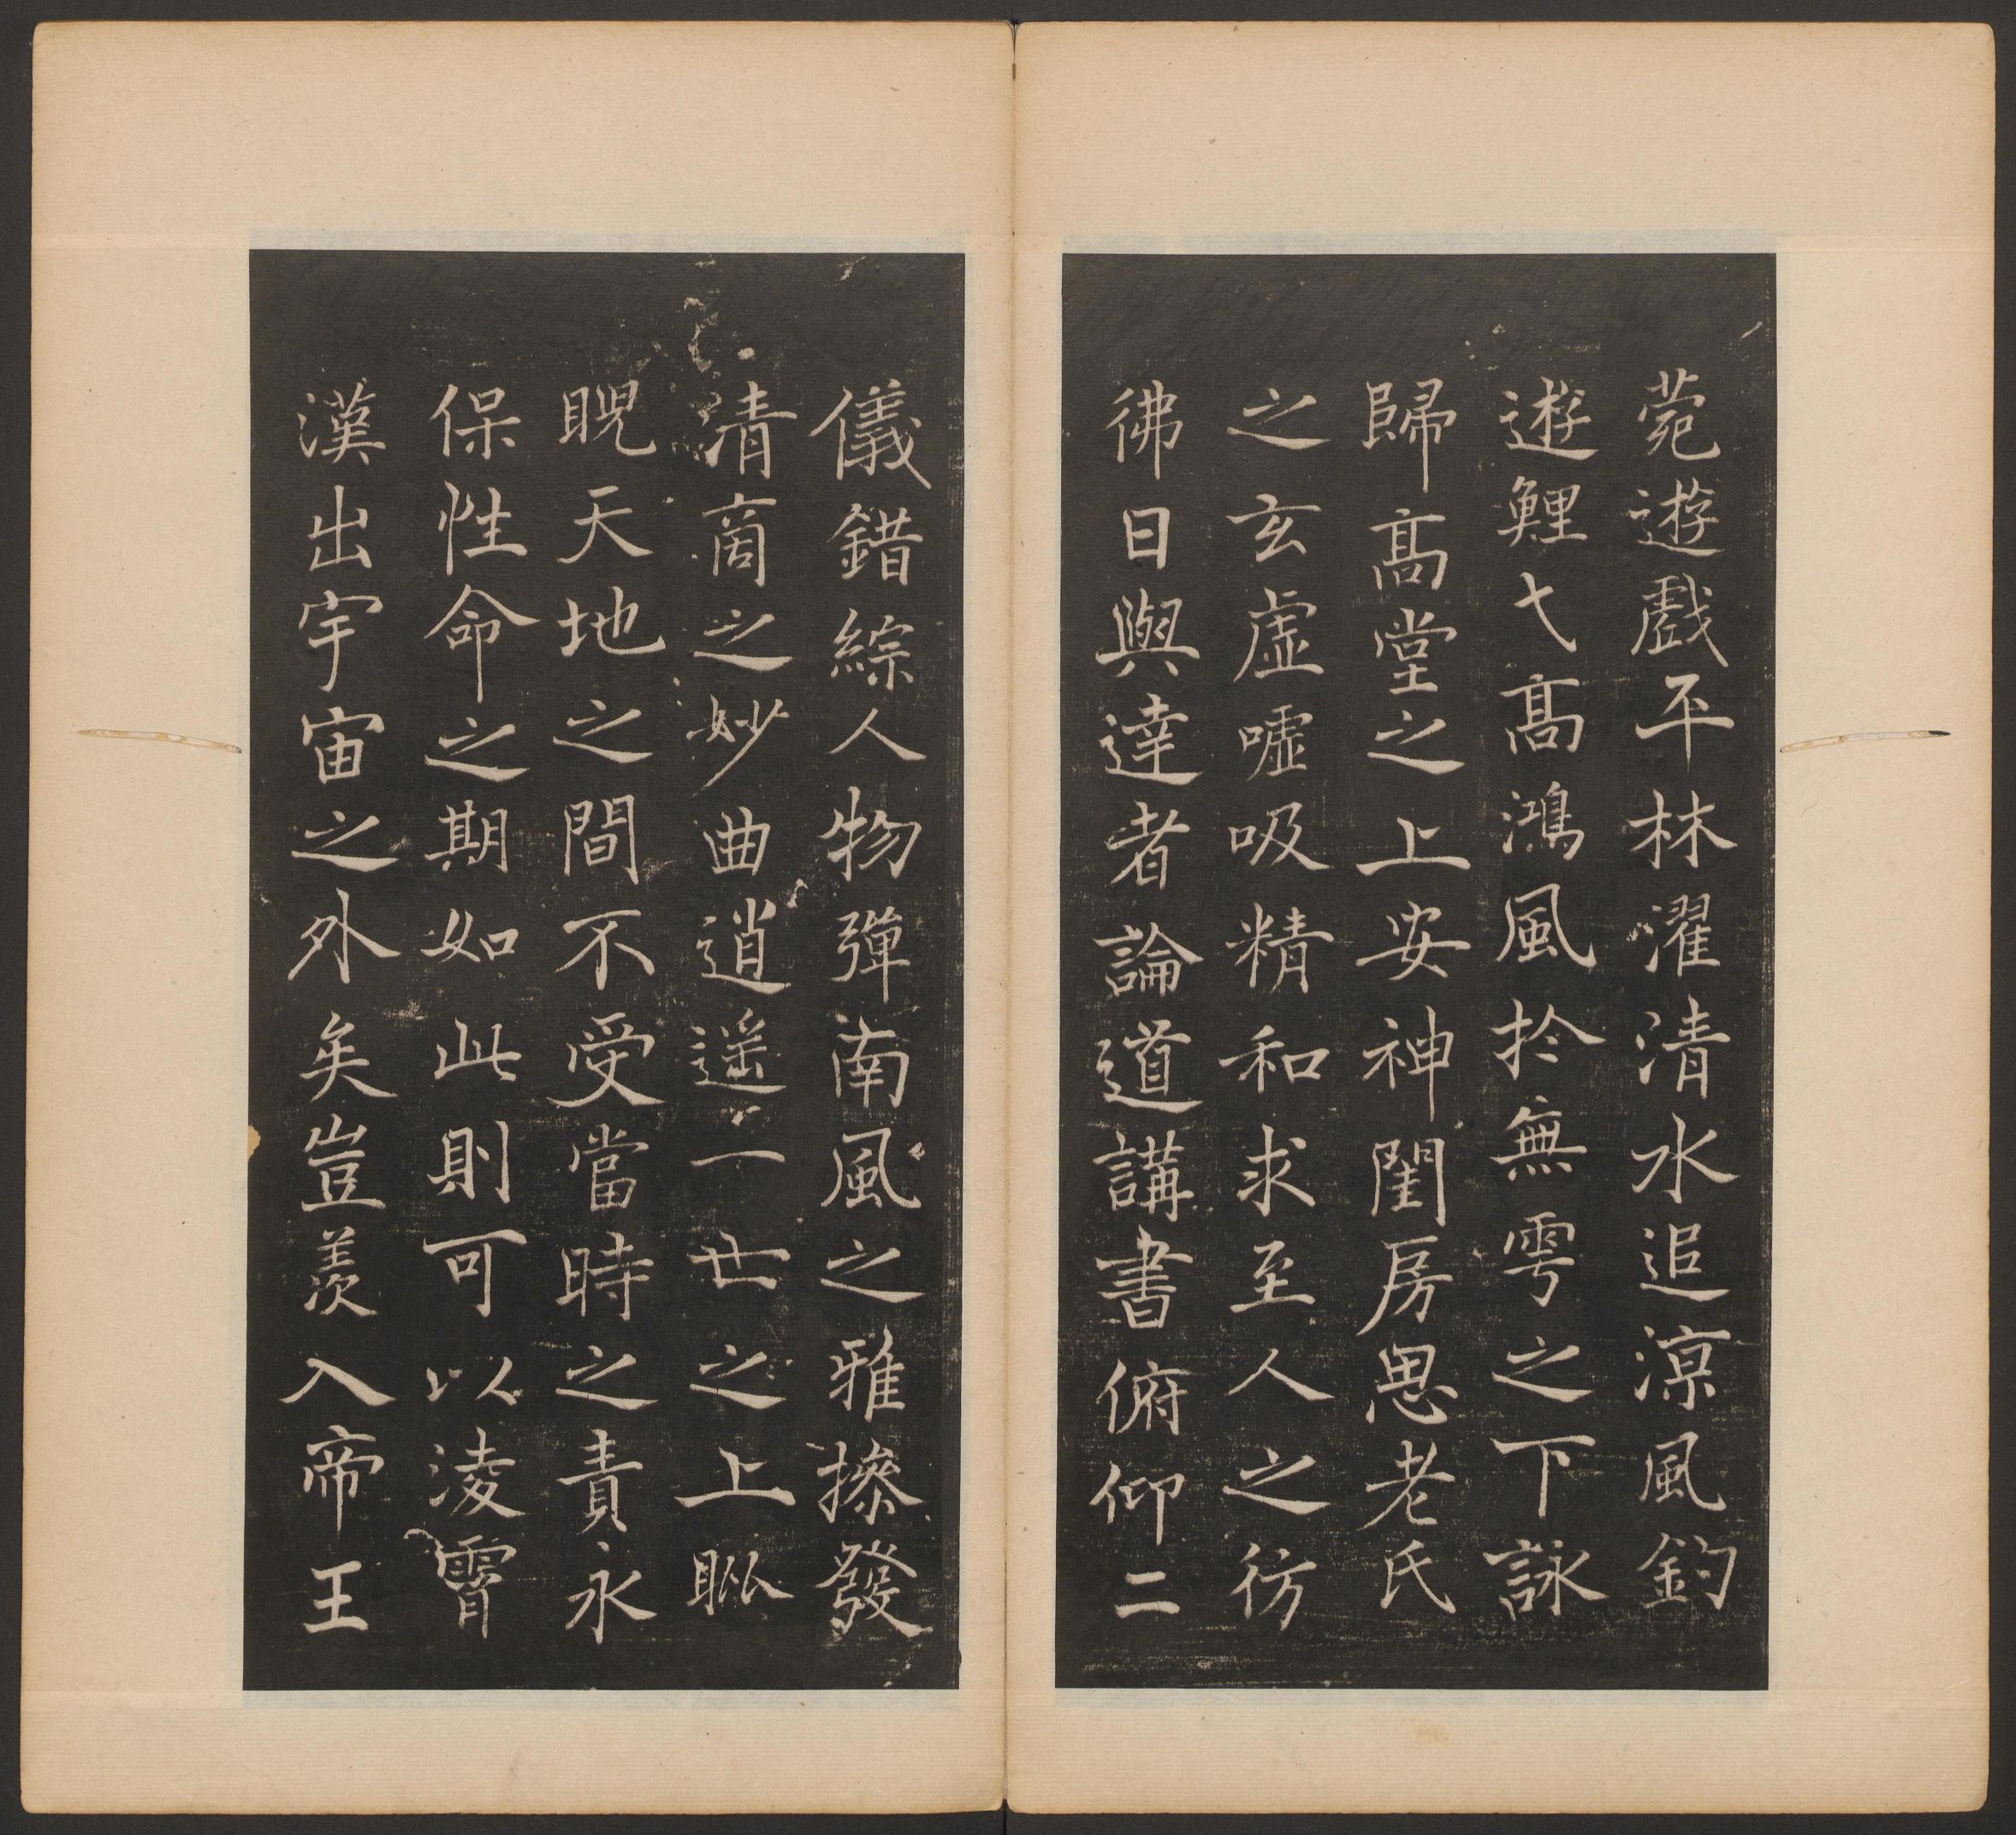 菀遊戲平林濯清水追涼風釣
遊鯉弋高鴻風於無雩之下詠
歸高堂之上安神閨房思老氏
之玄虛噓吸精和求至人之彷
彿日與達者論道講書俯仰二
儀錯綜人物彈南風之雅操發
清商之妙曲逍遙一世之上睨
睨天地之間不受當時之責永
保性命之期如此則可以淩霄
漢出宇宙之外矣豈羨入帝王